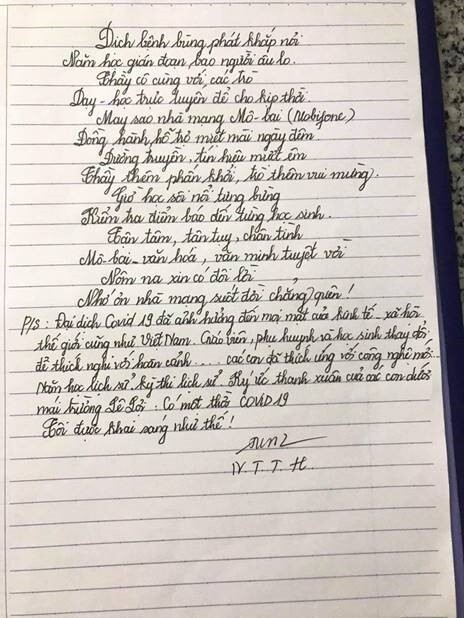 Dịch bệnh bùng phát khắp nơi
Năm học gián đoạn bao người âu lo.
Thầy cô cùng với các trò
Dạy - học trực tuyến để cho kịp thời
May sao nhà mạng Mô-bai (Mobifone)
Đồng hành, hỗ trợ miệt mài ngày đêm
Đường truyền, tín hiệu mượt êm
Thầy thêm phấn khởi, trò thêm vui mừng.
Giờ học sôi nổi tưng bừng
Kiểm tra điểm báo đến từng học sinh.
Tận tâm, tận tụy, chân tình
Mô-bai - văn hoá, văn minh tuyệt vời
Nôm na xin có đôi lời
Nhớ ơn nhà mạng suốt đời chẳng quên!
P/S: Đại dịch Covid 19 đã ảnh hưởng đến mọi mặt của kinh tế - xã hội
thế giới cũng như Việt Nam. Giáo viên, phụ huynh và học sinh thay đổi
để thích nghi với hoàn cảnh ..... các con đã thích ứng với công nghệ mới...
Năm học lịch sử. kỳ thi lịch sử. Ký ức thanh xuân của các con dưới
mái trường Lê Lợi. Có một thời COVID 19
Tôi được khai sáng như thế!
N. T. T. H